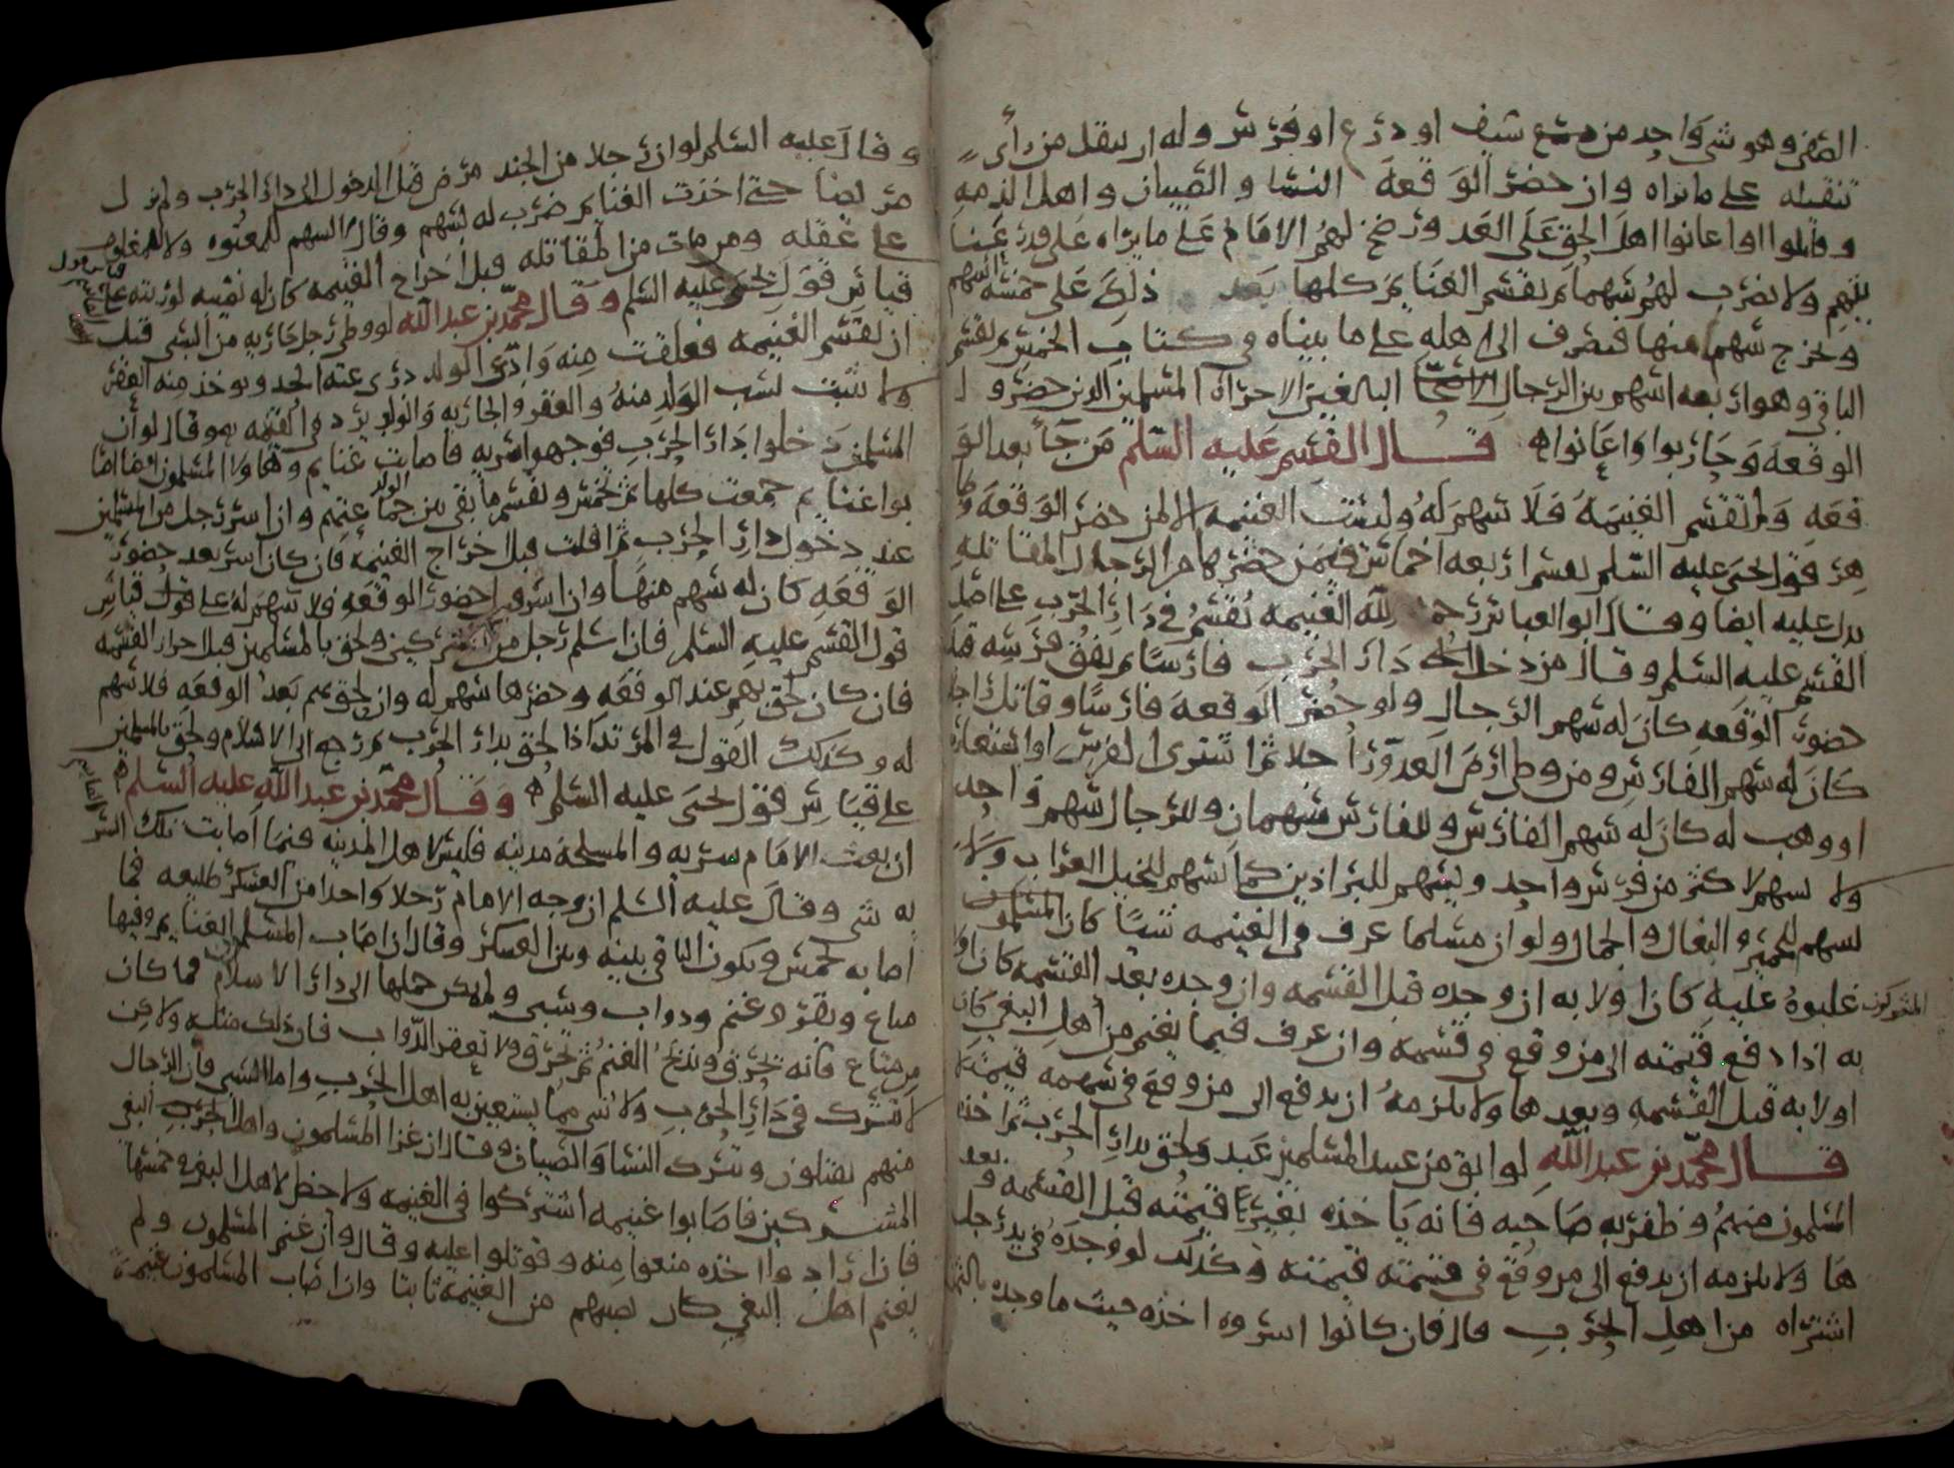 الصفي وهو شي واحد من سيف او درع او فرس وله ان ينفل من راى
تنفيله على ما يراه وان حضر الوقعة النسا والصبيان واهل الذمه
وقاتلوا او اعانوا اهل الحق على العدو رضخ لهم الامام على ما يراه على قدر عنا
يهم ولا يضرب لهم بسهم ثم يقسم الغنايم كلها بعد ذلك على خمسة اسهم
ويخرج سهم منها فيصرف الى اهله على ما بيناه في كتاب الخمس ثم يقسم
الباقي وهو اربعه اسهم بين الرجال البالغين الاحرار المسلمين الذين حضروا
الوقعة وحاربوا واعانوا قال القسم عليه السلم من جا بعد الو
قعه ولم تقسم الغنيمة فلا سهم له وليست الغنيمه الا لمن حضر الوقعة
قول يحيى عليه السلم يقسم اربعه اخماس فيمن حضرها من الرجال المقاتله
يدل عليه ايضا وقال ابو العباس رحمه الله الغنيمه تقسم في دار الحرب على اصل
القسم عليه السلم وقال من دخل دار الحرب فارسا ثم نفق فرسه قبل
حضور الوقعه كان له سهم الرجال ولو حضر الوقعة فارسا وقاتل راجلا
كان له سهم الفارس ومن وطى ارض العدو راجلا ثم اشترى الفرس او استعاره
او وهب له كان له سهم الفارس وللفارس سهمان وللرجال سهم واحد
ولا يسهم لاكثر من فرس واحد ويسهم للبراذين كما يسهم للخيل العراب ولا
يسهم للحمير والبغال والجمال ولو ان مسلما عرف في الغنيمه شيا كان
المشركون غلبوه عليه كان اولا به ان وجده قبل القسمه وان وجده بعد القسمه كان اولا
به اذا دفع قيمته الى من وقع في قسمه وان عرف فيما يغنم من اهل البغي كان
اولا به قبل القسمه وبعدها ولا يلزمه ان يدفع الى من وقع في سهمه قيمته
قال محمد بن عبد الله لو ابق من عبيد المسلمين عبد ولحق بدار الحرب ثم اخذه
المسلمون منهم وظفر به صاحبه فانه ياخذه بغير قيمته قبل القسمه وبعد
ها ولا يلزمه ان يدفع الى من وقع في قسمته قيمته وكذلك لو وجده في يد رجل
اشتراه من اهل الحرب قال فان كانوا اسروه اخذه حيث ما وجده بالثمن
وقال عليه السلم لو ان رجلا من الجند مرض قبل الدخول الى دار الحرب ولم يزل
مريضا حتى اخذت الغنايم ضرب له بسهم وقال السهم للمعتوه ولا للمغلوب
على عقله ومن مات من المقاتله قبل اخراج الغنيمه كان له نصيبه لورثته على
قياس قول يحيى عليه السلم وقال محمد بن عبد الله لو وطى رجل جاريه من السبي قبل
ان تقسم الغنيمه فعلقت منه وادعى الولد درى عنه الحد ويوخذ منه العقر
ولا يثبت نسب الولد منه والعقر والجاريه والولد يرد في الغنيمه وقال لو ان
المسلمين دخلوا دار الحرب فوجهوا سريه فاصابت غنايم وهاولا المسلمون ايضا اصا
بوا غنايم جمعت كلها ثم تخمس ويقسم ما بقي بين جماعتهم وان اسر رجل من المسلمين
عند دخول دار الحرب ثم افلت قبل اخراج الغنيمة فان كان اسر بعد حضور
الوقعه كان له سهم منها وان اسر قبل حضور الوقعه فلا سهم له على قياس
قول القسم عليه السلم فان اسلم رجل من المشركين ولحق بالمسلمين قبل احراز الغنيمه
فان كان لحق بهم عند الوقعه وحضرها سهم له وان لحق بهم بعد الوقعه فلا سهم
له وكذلك القول في المرتد اذا لحق بدار الحرب ثم رجع الى الاسلام ولحق بالمسلمين
على قياس قول يحيى عليه السلم وقال محمد بن عبد الله عليه السلم
ان بعث الامام سريه والمسلحة مدينه فليس لاهل المدينه فيما اصابت تلك السر
يه شي وقال عليه السلم ان وجه الامام رجلا واحدا من العسكر طليعه فما
اصابه خمس ويكون الباقي بينه وبين العسكر وقال ان اصاب المسلمون الغنايم وفيها
متاع وبقر وغنم ودواب وسبي ولم يمكن حملها الى دار الاسلام فما كان
من متاع فانه يحرق وتذبح الغنم ثم تحرق ولا تعقر الدواب فان ذلك مثله ولاكن
لا تترك في دار الحرب ولا شي مما يستعين به اهل الحرب واما السبي فان الرجال
منهم يقتلون ويترك النسا والصبيان وقال ان غزا المسلمون واهل البغي
المشركين فاصابوا غنيمه اشتركوا في الغنيمه ولا حظ لاهل البغي في خمسها
فان ارادوا اخذه منعوا منه وقوتلوا عليه وقال وان غنم المسلمون ولم
يغنم اهل البغي كان نصيبهم من الغنيمة ثابتا وان اصاب المسلمون غنيمة